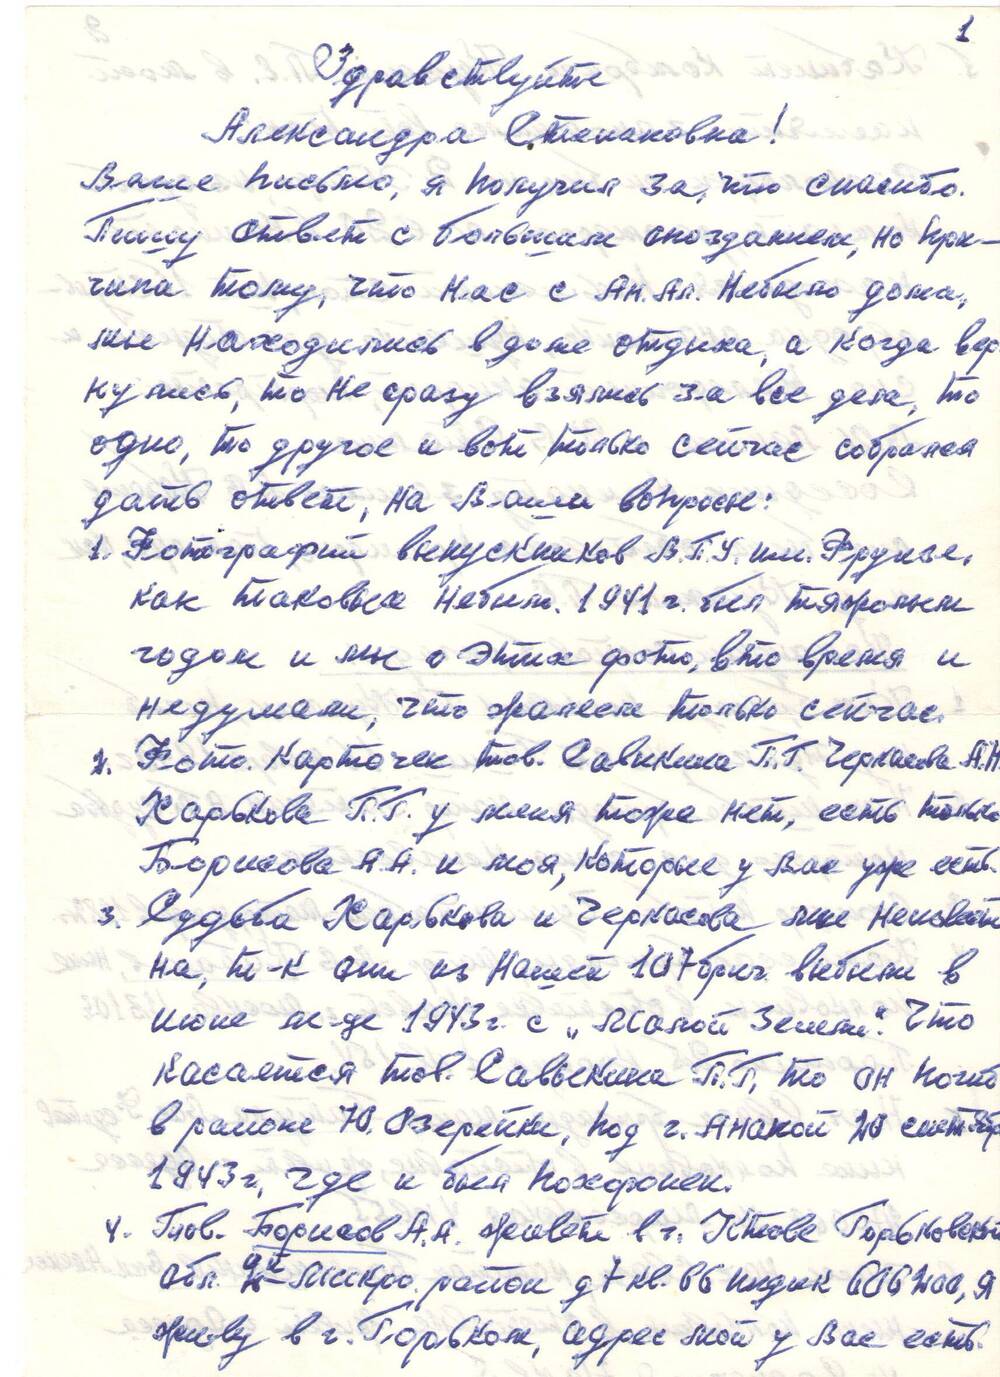 1
Здравствуйте
Александра Степановна!
Ваше письмо, я получил за, что спасибо.
Пишу ответ с большим опозданием, но при-
чина тому, что нас с Ан. Ал. Небыло дома,
мы находились в доме отдыха, а когда вер
нулись, то не сразу взялись за все дела, то
одно, то другое и вот только сейчас собрался
дать ответ, на Ваши вопросы:
1. Фотографий выпускников В.П.У. им. Фрунзе.
как таковых небыло. 1941 г. был тяжолым
годом и мы о этих фото, в то время и
недумали, что жалеем только сейчас.
2. Фото. карточек тов. Савыкина П.Г. Черкасова А.Н.
Харькова П.Г. у меня тоже нет, есть только
Борисова А.А. и моя, которые у Вас уже есть.
3. Судьба Харькова и Черкасова мне неизвест
на, т-к они из нашей 107 бриг выбыли в
июне м-це 1943 г. с „Малой Земли". Что
касается тов. Савыкина П.Г, то он погиб
в районе Ю. Озерейки, под г. Анапой 20 сентября
1943 г, где и был похоронен.
4. Тов. Борисов А.А. живёт в г. Кстове Горьковской
обл. 2й Микро. район д 7 кв. 66 индик 606200, Я
живу в г. Горьком, адрес мой у Вас есть.